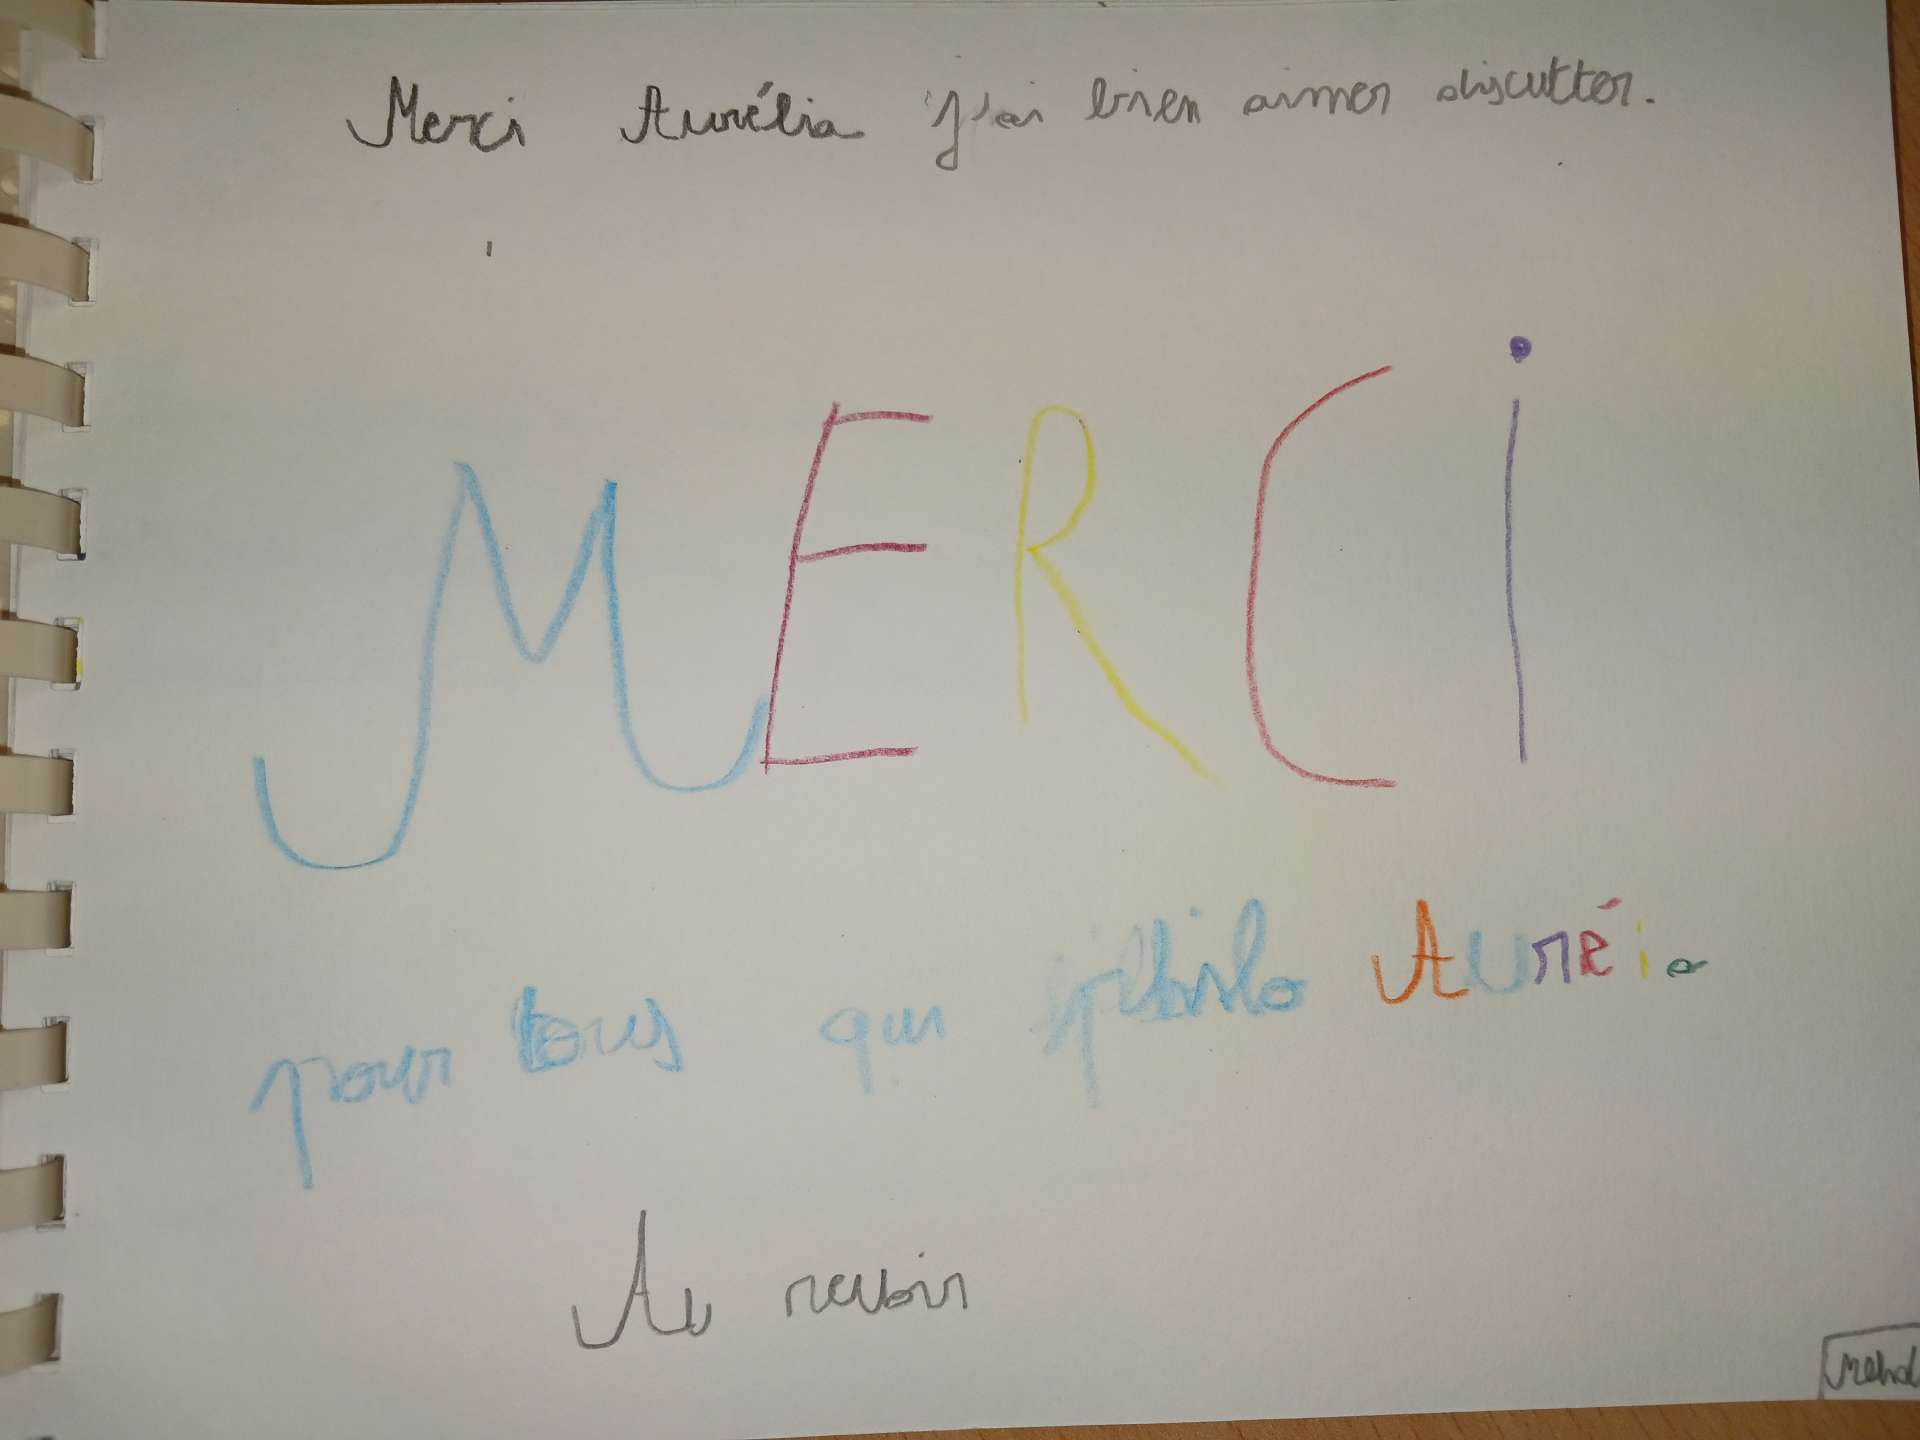 Merci Aurélia j'ai bien aimer discutter.
MERCi
pour tous qui Auréia
Au revoir